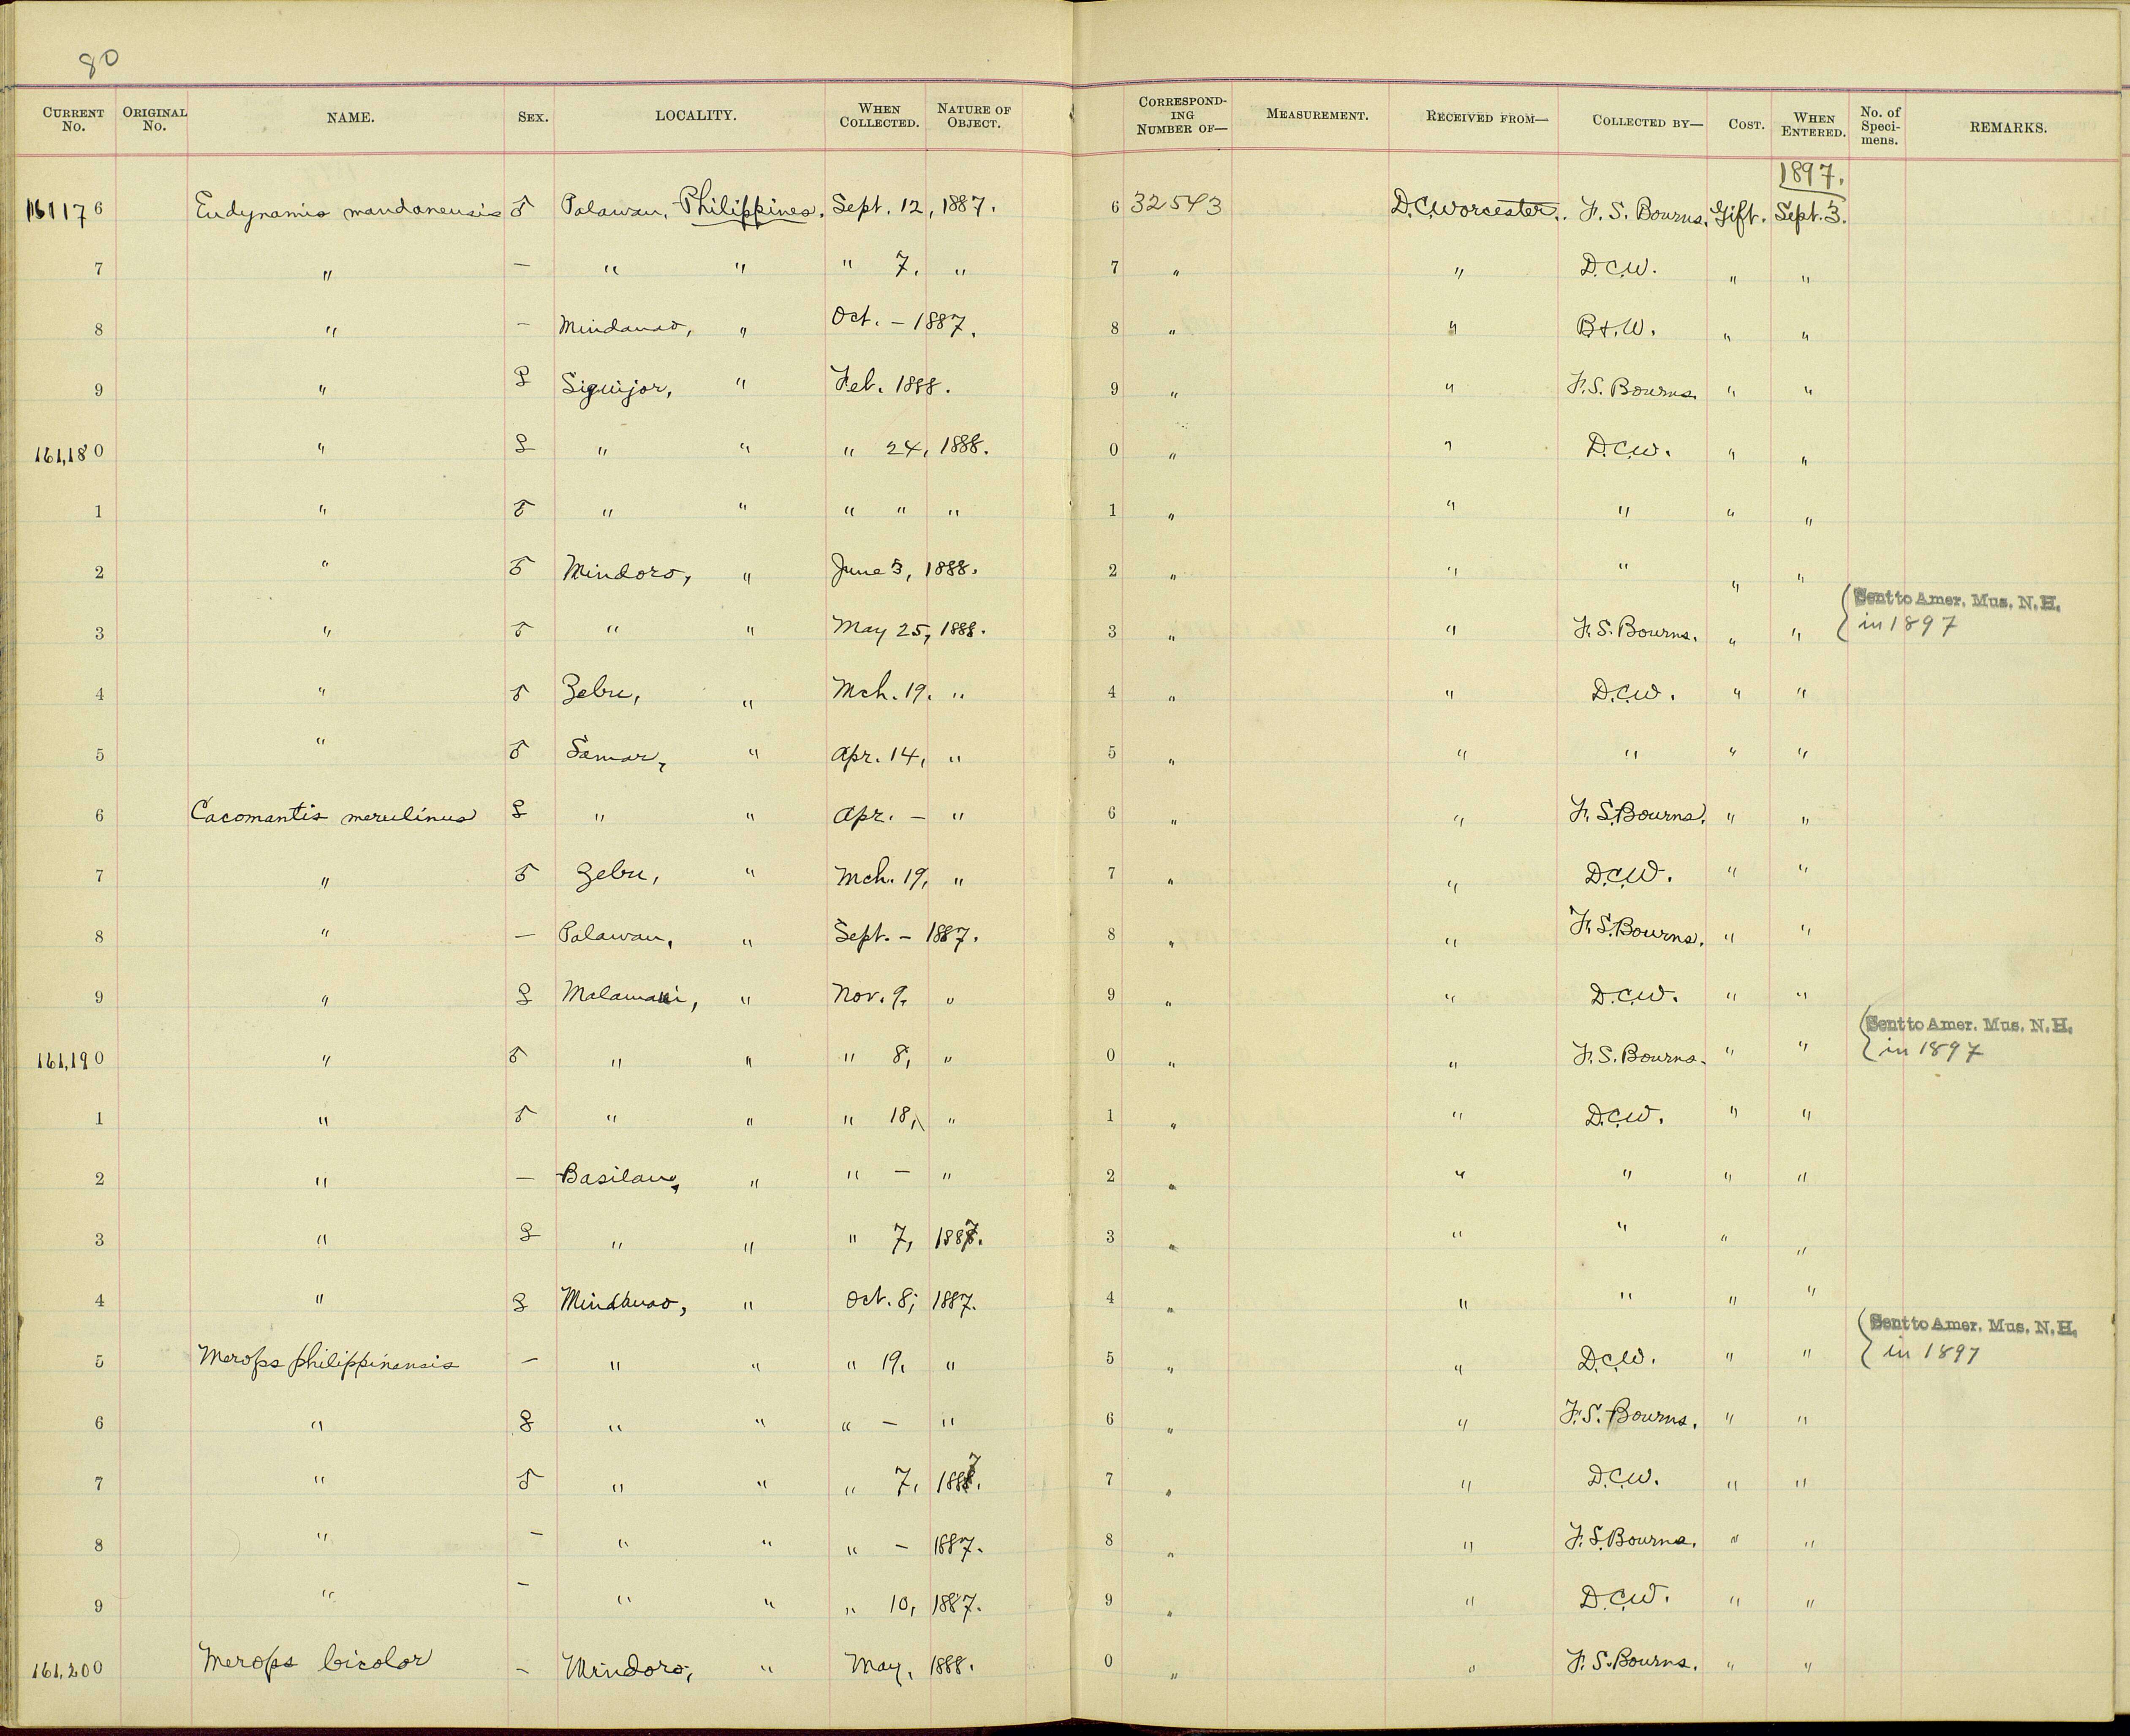 80
CURRENT No. ORIGINAL No. NAME. SEX. LOCALITY. WHEN COLLECTED. NATURE OF OBJECT. CORRESPONDING NUMBER OF— MEASUREMENT. RECEIVED FROM— COLLECTED BY— COST. WHEN ENTERED. No. of Specimens. REMARKS.
1897.
161176 Eudynamis mandanensis ♂ Palawan, Philippines. Sept. 12, 1887. 6 32543 D.C.Worcester. F. S. Bourns. Gift. Sept. 3.
7 " — " " " 7. " 7 " " D.C.W. " "
8 " – Mindanao, " Oct. – 1887. 8 " " B+.W. " "
9 " ♀ Siquijor, " Feb. 1888. 9 " " F.S. Bourns. " "
161,180 " ♀ " " " 24, 1888. 0 " " D.C.W. " "
1 " ♂ " " " " " 1 " " " " "
2 " ♂ Mindoro, " June 3, 1888. 2 " " " " "
3 " ♂ " " May 25, 1888. 3 " " F. S. Bourns. " " { Sent to Amer. Mus. N.H. in 1897
4 " ♂ Zebu, " Mch. 19. " 4 " " D.C.W. " "
5 " ♂ Samar, " Apr. 14, " 5 " " " " "
6 Cacomantis merulinus ♀ " " Apr. – " 6 " " F. S. Bourns. " "
7 " ♂ Zebu, " Mch. 19, " 7 " " D.C.W. " "
8 " — Palawan, " Sept. – 1887. 8 " " F. S. Bourns. " "
9 " ♀ Malamaui, " Nov. 9. " 9 " " D.C.W. " "
161,190 " ♂ " " " 8, " 0 " " F. S. Bourns. " " { Sent to Amer. Mus. N.H. in 1897
1 " ♂ " " " 18, " 1 " " D.C.W. " "
2 " — Basilan, " " — " 2 " " " " "
3 " ♀ " " " 7, 1887. 3 " " " " "
4 " ♀ Mindanao, " Oct. 8, 1887. 4 " " " " "
5 Merops philippinensis — " " " 19. " 5 " " D.C.W. " " { Sent to Amer. Mus. N.H. in 1897
6 " ♀ " " " — " 6 " " F. S. Bourns. " "
7 " ♂ " " " 7, 1887. 7 " " D.C.W. " "
8 " – " " " – 1887. 8 " " F. S. Bourns. " "
9 " – " " " 10, 1887. 9 " " D.C.W. " "
161,200 Merops bicolor – Mindoro, " May, 1888. 0 " " F. S. Bourns. " "